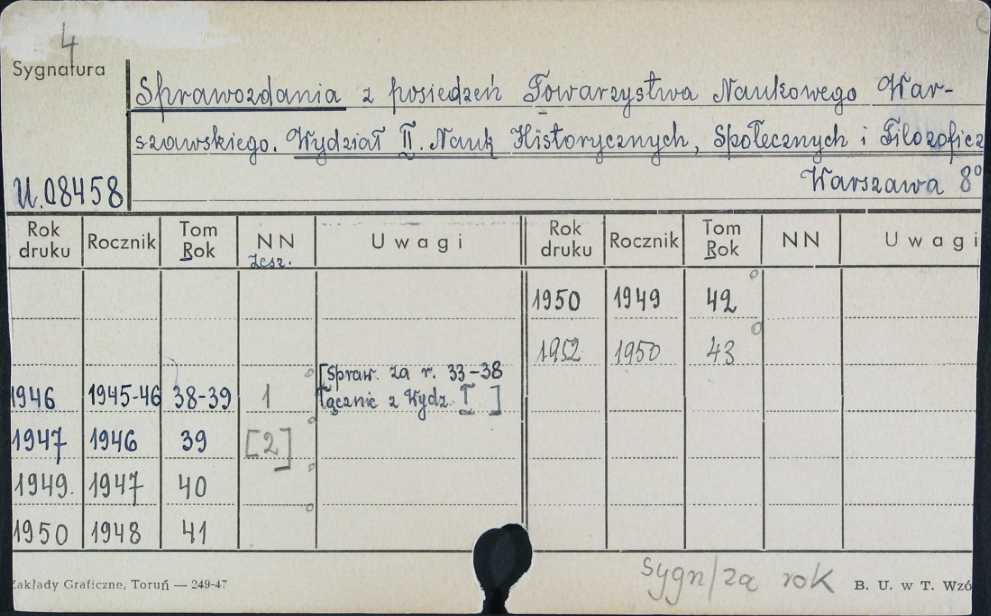 4
Sygnatura
Sprawozdania z posiedzeń Towarzystwa Naukowego War-
szawskiego. Wydział II. Nauk Historycznych, Społecznych i Filozoficz
U.08458 Warszawa 8°
Rok druku Rocznik Tom Rok NN zesz. Uwagi Rok druku Rocznik Tom Rok NN Uwagi
1950 1949 42
1952 1950 43
[Spraw. za r. 33-38
1946 1945-46 38-39 1 łącznie z Wydz. I ]
1947 1946 39 [2]
1949. 1947 40
1950 1948 41
sygn/za rok
Zakłady Graficzne, Toruń — 249-47 B. U. w T. Wzó